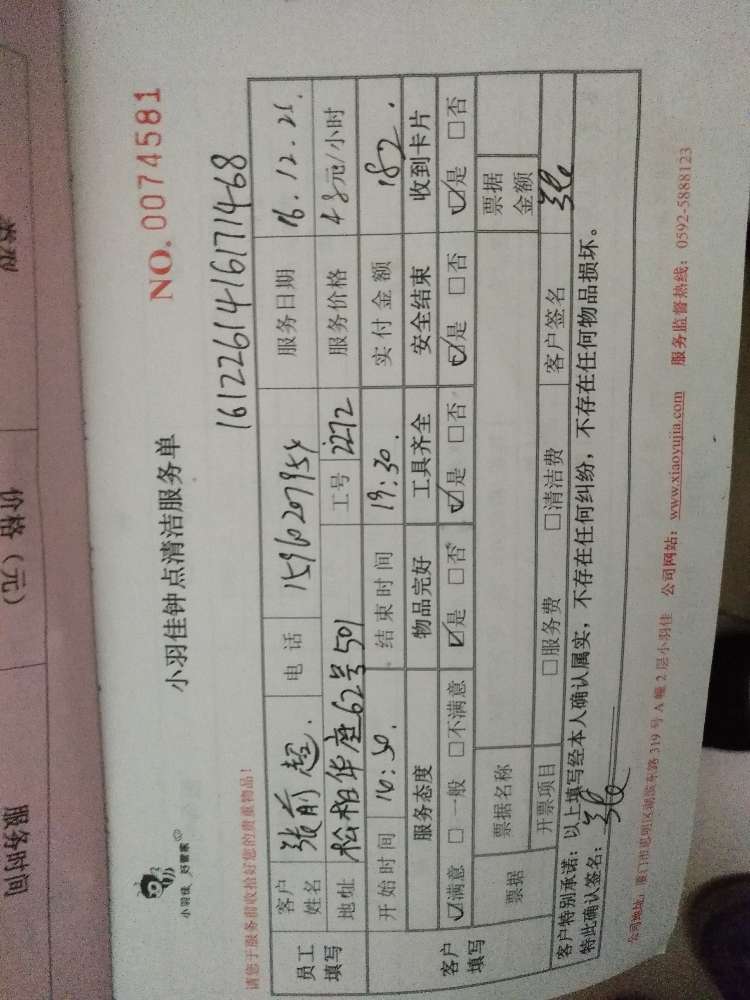 小羽佳 好管家
小羽佳钟点清洁服务单
NO. 0074581
请您于服务前收拾好您的贵重物品！
16122614161771468
员工填写
客户姓名 张前超. 电话 服务日期
地址 松柏华庭62号501 工号 2272 服务价格 48元/小时
开始时间 结束时间 19:30. 实付金额 182.
客户填写
服务态度 物品完好 工具齐全 安全结束 收到卡片
☑满意 □一般 □不满意 ☑是 □否 ☑是 □否 ☑是 □否 ☑是 □否
票据 票据名称 票据金额
开票项目 □服务费 □清洁费 客户签名
客户特别承诺：以上填写经本人确认属实，不存在任何纠纷，不存在任何物品损坏。
特此确认签名：
公司地址：厦门市思明区湖滨东路 319 号 A 幢 2 层小羽佳 公司网站：www.xiaoyujia.com 服务监督热线：0592-5888123
类型
价格（元）
服务时间